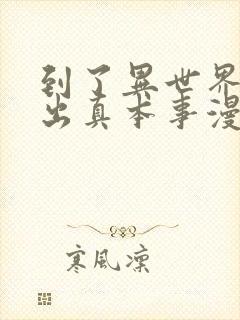 到了異世界
出真本事漫
寒風凜